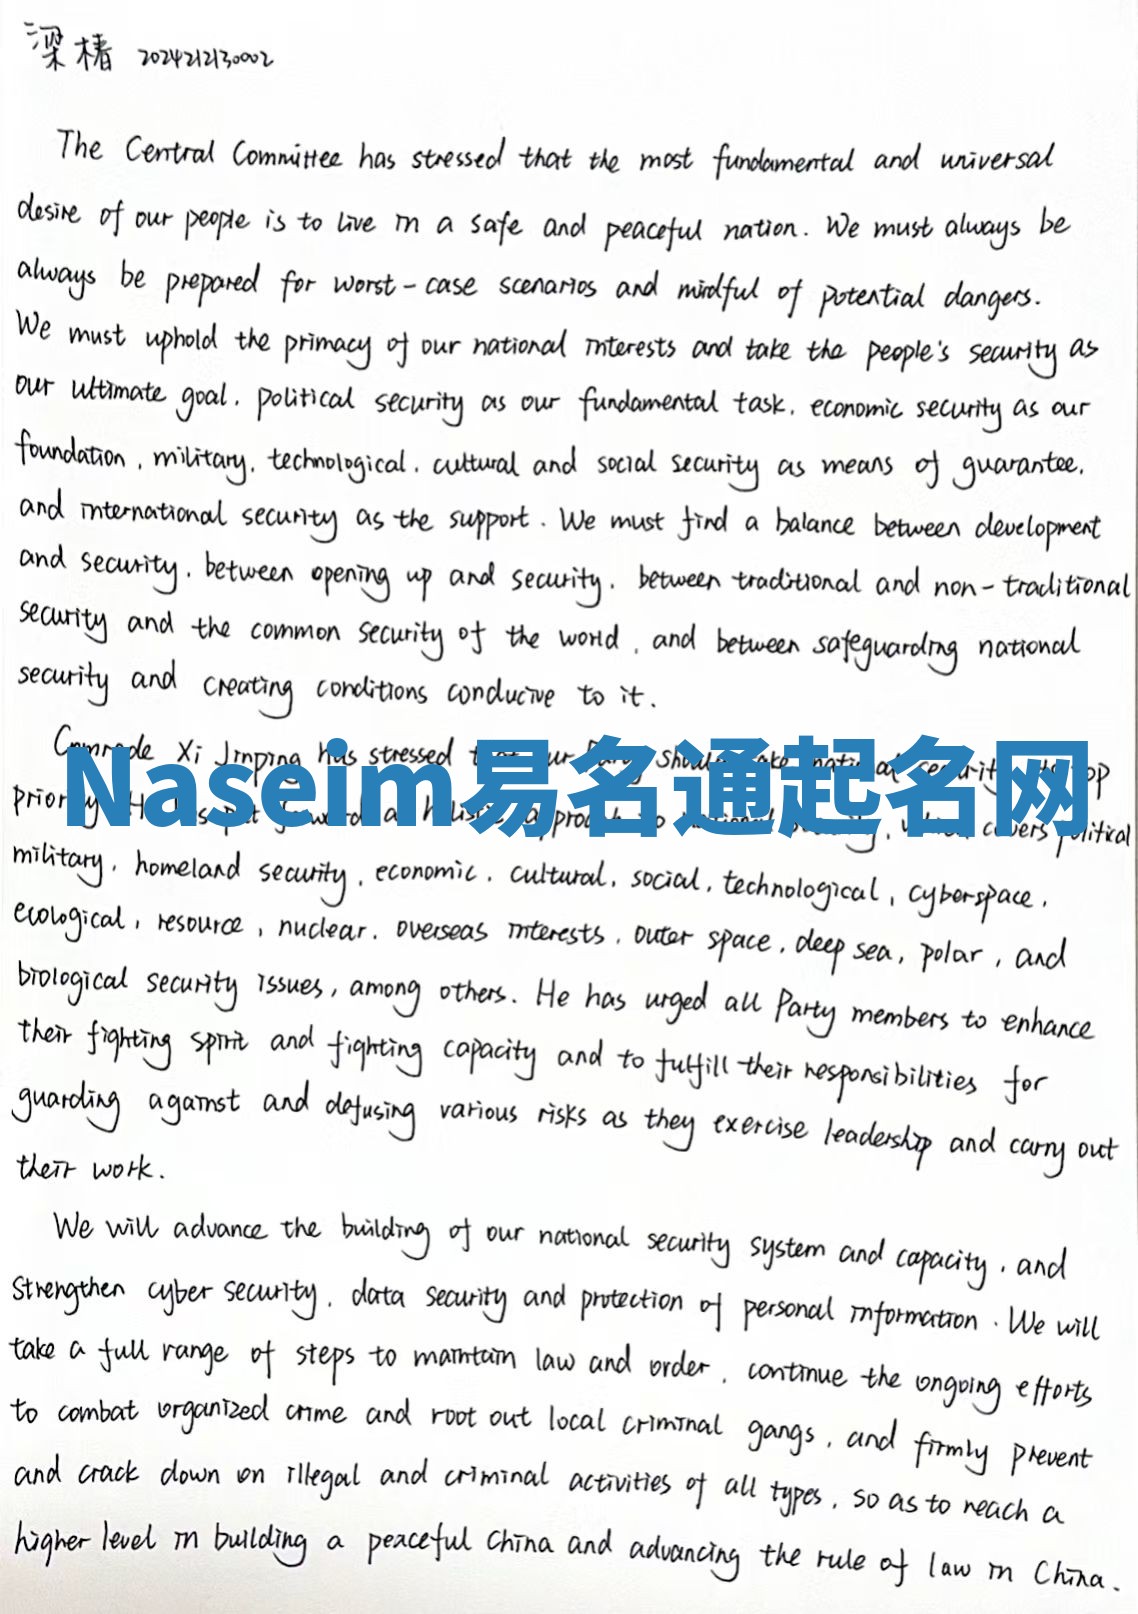 梁椿 2024212130002
The Central Committee has stressed that the most fundamental and universal
desire of our people is to live in a safe and peaceful nation. We must always be
always be prepared for worst-case scenarios and mindful of potential dangers.
We must uphold the primacy of our national interests and take the people's security as
our ultimate goal, political security as our fundamental task, economic security as our
foundation, military, technological, cultural and social security as means of guarantee,
and international security as the support. We must find a balance between development
and security, between opening up and security, between traditional and non-traditional
security and the common security of the world, and between safeguarding national
security and creating conditions conducive to it.
Comrade Xi Jinping has stressed
Naseim易名通起名网
military, homeland security, economic, cultural, social, technological, cyberspace,
ecological, resource, nuclear, overseas interests, outer space, deep sea, polar, and
biological security issues, among others. He has urged all Party members to enhance
their fighting spirit and fighting capacity and to fulfill their responsibilities for
guarding against and defusing various risks as they exercise leadership and carry out
their work.
We will advance the building of our national security system and capacity, and
strengthen cyber security, data security and protection of personal information. We will
take a full range of steps to maintain law and order, continue the ongoing efforts
to combat organized crime and root out local criminal gangs, and firmly prevent
and crack down on illegal and criminal activities of all types, so as to reach a
higher level in building a peaceful China and advancing the rule of law in China.